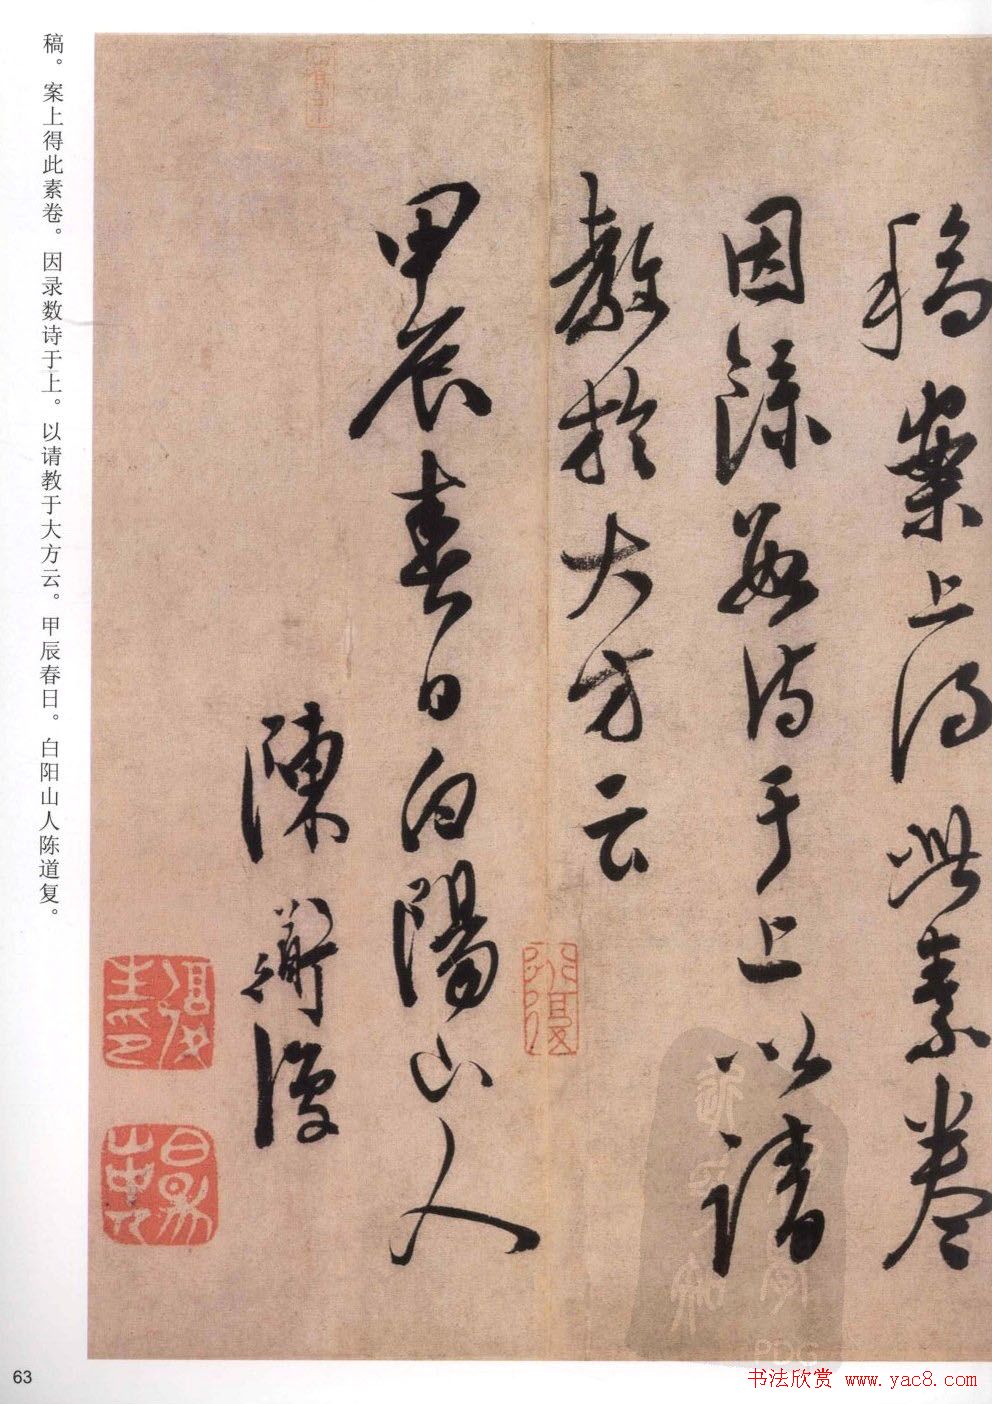 稿案上得此素卷
因录数诗于上以请
教於大方云
甲辰春日白陽山人
陳道復
稿。案上得此素卷。因录数诗于上。以请教于大方云。甲辰春日。白阳山人陈道复。
63
书法欣赏 www.yac8.com
PDG